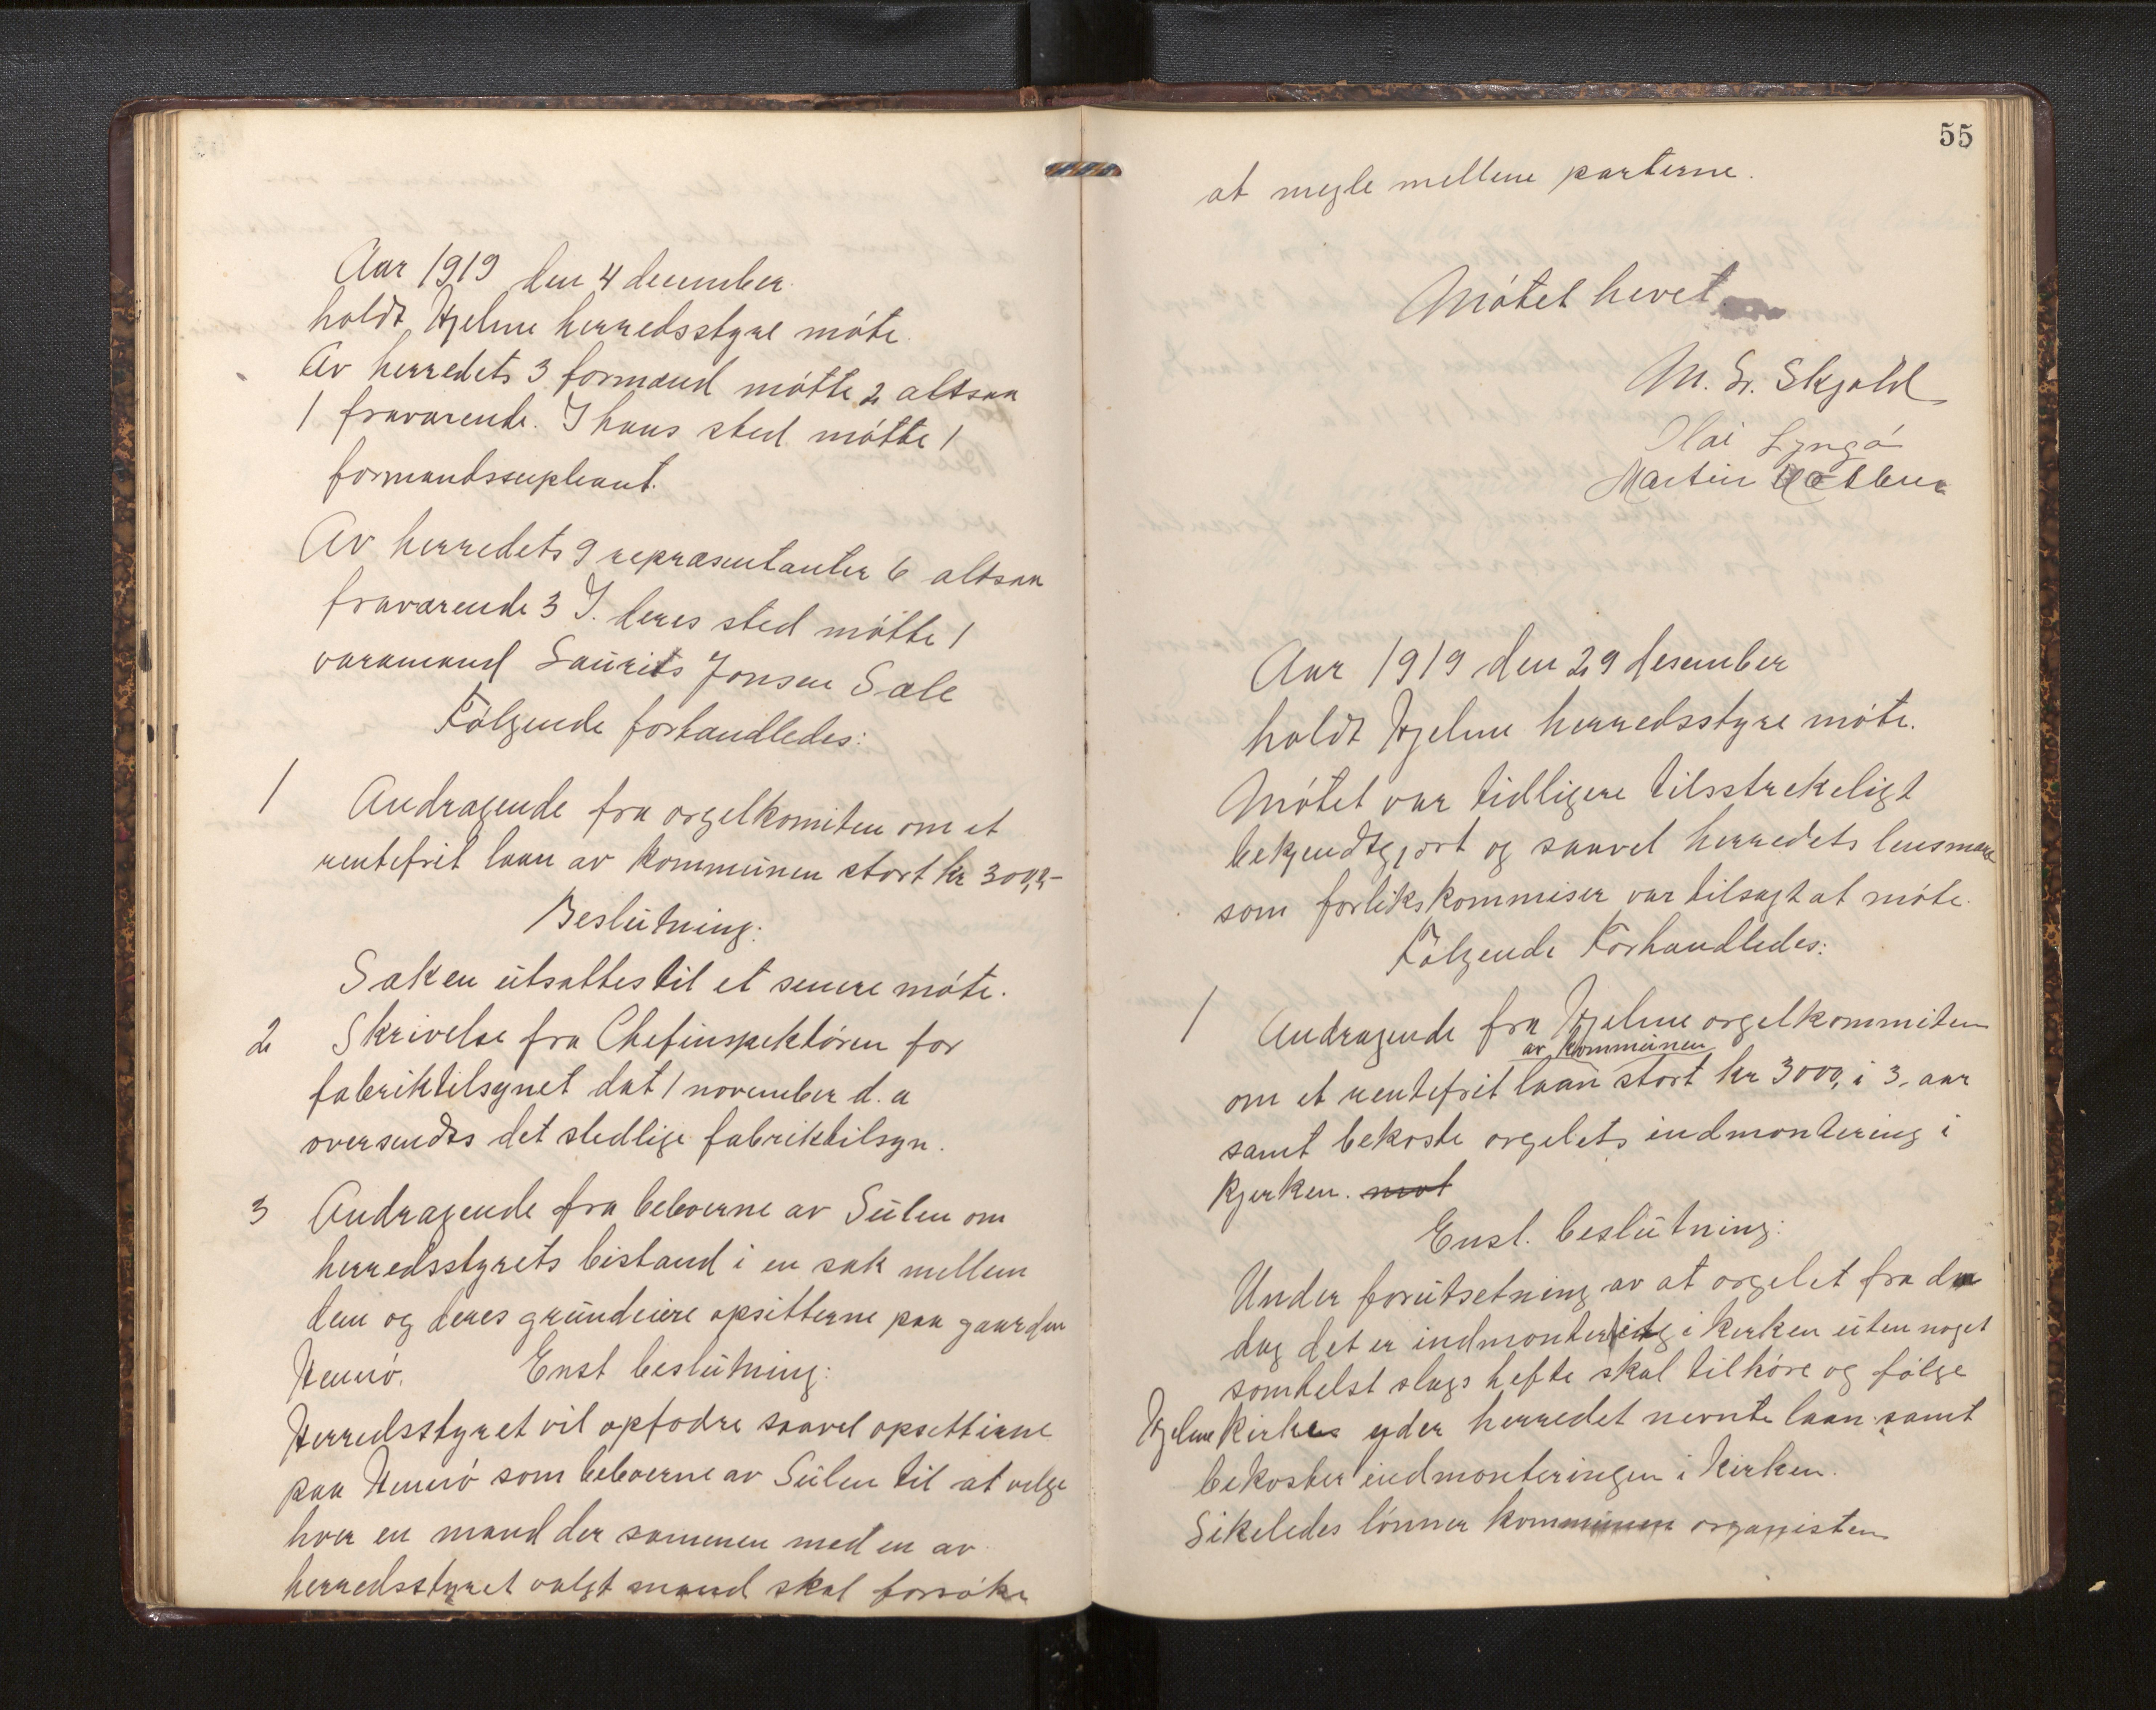 Aar 1919 den 4 december
holdt Hjelme herredsstyre møte.
Av herredets 3 formænd møtte 2 altsaa
1 fraværende. I hans sted møtte 1
formandssupleant.
Av herredets 9 repræsentanter 6 altsaa
fraværende 3 I. deres sted møtte 1
varamand Laurits Jonsen Sæle
Følgende forhandledes:
1 Andragende fra orgelkomiten om et
rentefrit laan av kommunen stort kr 3000,-
Beslutning:
Saken utsattes til et senere møte.
2 Skrivelse fra Chefinspektøren for
fabriktilsynet dat 1 november d. a
oversendes det stedlige fabriktilsyn.
3 Andragende fra beboerne av Sulen om
herredsstyrets bistand i en sak mellem
dem og deres grundeiere opsitterne paa gaarden
Hernø. Enst beslutning:
Herredsstyret vil opfodre saavel opsitterne
paa Hernø som beboerne av Sulen til at velge
hver en mand der sammen med en av
herredsstyret valgt mand skal forsøke
55
at megle mellem parterne.
Møtet hevet
M. Sr. Skjold
Olai Lyngø
Martin
Aar 1919 den 29 desember
holdt Hjelme herredsstyre møte.
Møtet var tidligere tilsstrekeligt
bekjendtgjort og saavel herredets lensmand
som forlikskommiser var tilsagt at møte.
Følgende Forhandledes:
1 Andragende fra Hjelme orgelkommiten
av kommunen
om et rentefrit laan stort kr 3000, i 3. aar
samt bekoste orgelets indmontering i
kjerken. mot
Enst. beslutning:
Under forutsetning av at orgelet fra den
dag det er indmontert i kirken uten noget
somhelst slags hefte skal tilhøre og følge
Hjelme kirkes yder herredet nevnte laan samt
bekoster indmonteringen i kirken.
Likeledes lønner kommunen organisten